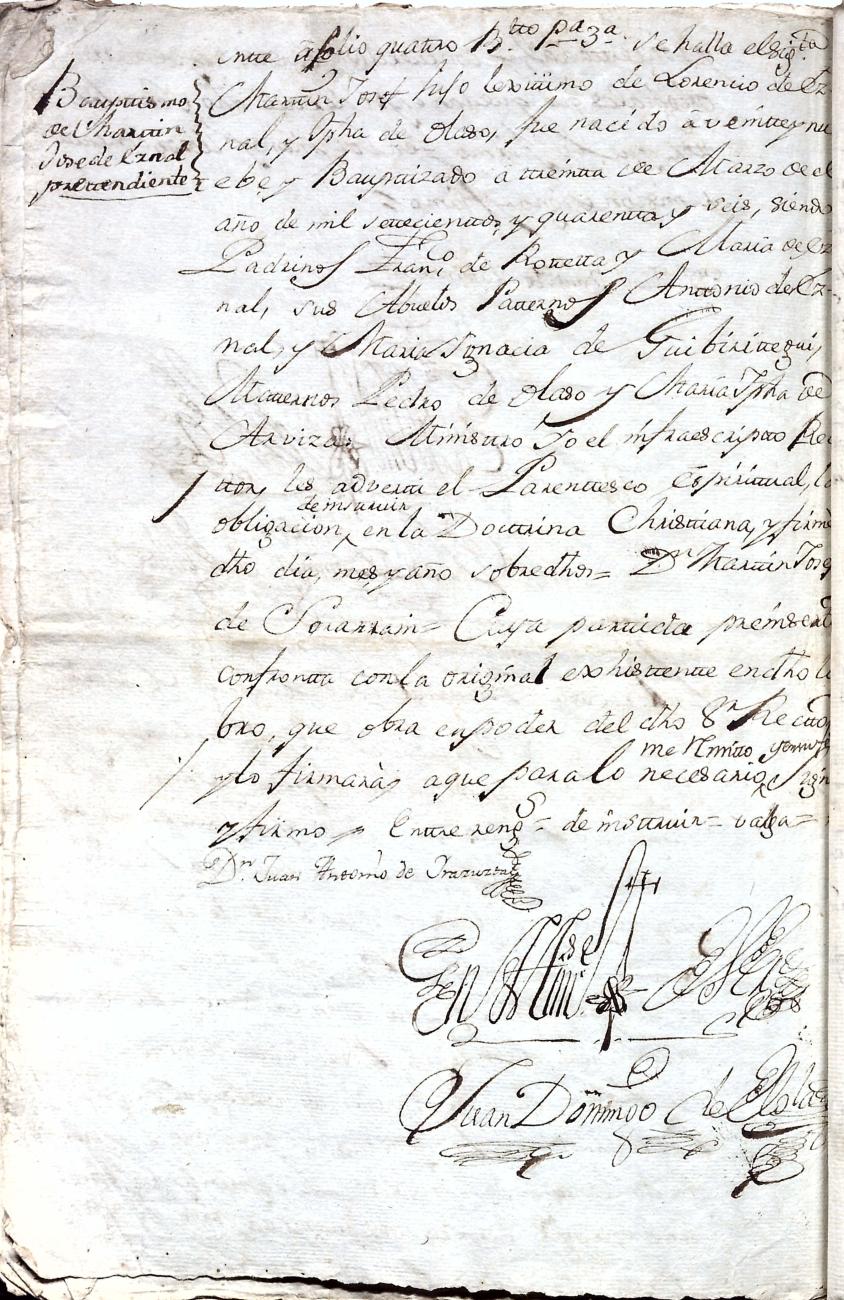 Bauptismo
de Martin
Josè de Ernal
prettendiente
ente afolio quattro B.tto pa 3a se halla el sig.ta
Martin Josef hijo lexitimo de Lorencio de Er-
nal, y Jpha de Olaso, fue nacido à veintte y nu
ebe, y Bauptizado a treintta de Marzo de el
año de mil settecienttos, y quarentta y seis, siendo
Padrinos Fran.co de Rottetta y Maria de Er-
nal, sus Abuelos Patternos Anttonio de Er-
nal, y Maria Ygnacia de Guibirittegui,
Matternos Pedro de Olaso y Maria Jpha de
Arviza, Ministro Yo el infraescriptto Rec
ttor, les advertti el Parenttesco Espirittual, la
de insttruir
obligacion, en la Docttrina Christtiana, y firmè
dho dia, mes, y año sobredhos= Dn Martin Josef
de Sovarrain= Cuya parttida preinsertta
confrontta con la original exhisttentte en dho li
bro, que obra en poder del dho Sr Recttor
me rrmitto y en
y lo firmarà, a que para lo necesario, sign
y firmo, Entre reng.s = de insttruir= valga=
Dn Juan Antonio de Yrazuzta
En ttim.o de verd
Juan Domingo de